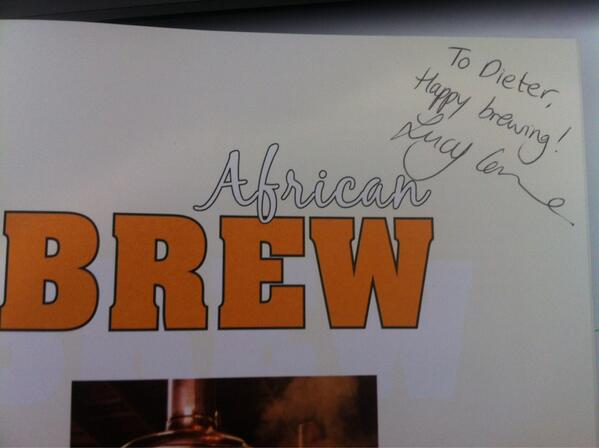 To Dieter,
Happy brewing!
Lucy Corne
African
BREW